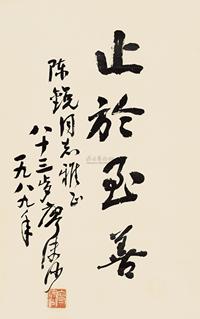 止於至善
陈锐同志雅正
八十三岁廖沫沙
一九八九年